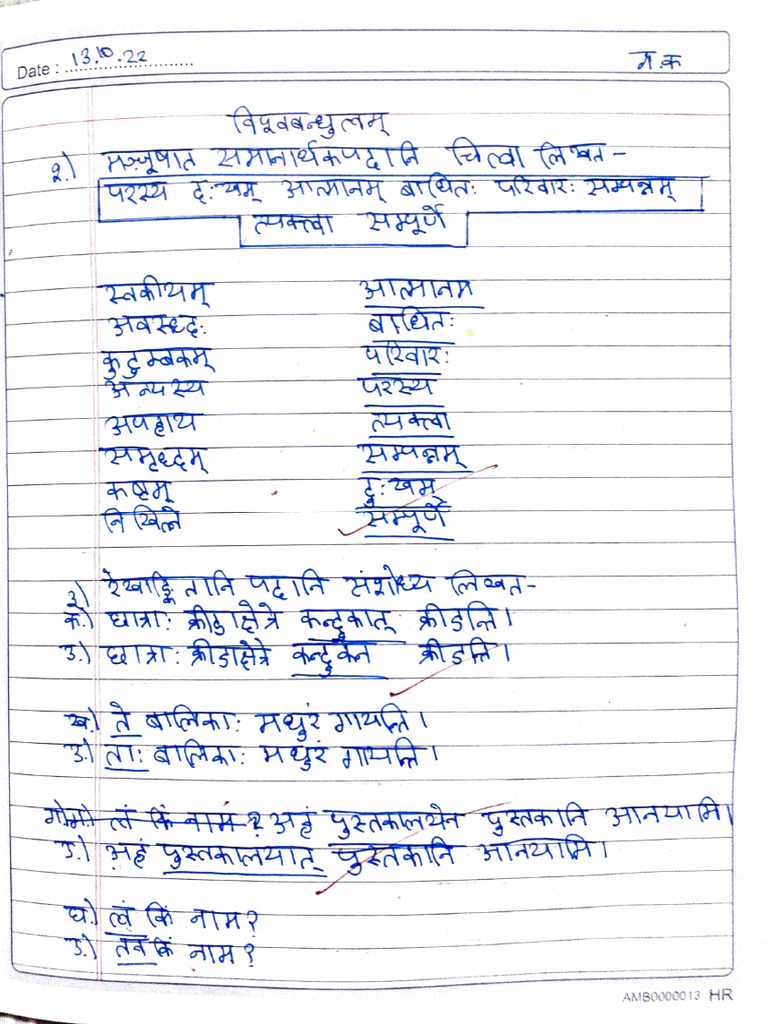 Date : 13.10.22
गृ.क
विश्वबन्धुत्वम्
२.) मञ्जूषात समानार्थकपदानि चित्वा लिखत-
परस्य दुःखम् आत्मानम् बाधितः परिवारः सम्पन्नम्
त्यक्त्वा सम्पूर्णे
स्वकीयम् आत्मानम
अवरुध्दः बाधितः
कुटुम्बकम् परिवारः
अन्यस्य परस्य
अपहाय त्यक्त्वा
समृध्दम् सम्पन्नम्
कष्टम् दुःखम्
निखिले सम्पूर्णे
३) रेखाङ्कितानि पदानि संशोध्य लिखत-
क.) छात्राः क्रीडाक्षेत्रे कन्दुकात् क्रीडन्ति।
उ.) छात्राः क्रीडाक्षेत्रे कन्दुकेन क्रीडन्ति।
ख.) ते बालिकाः मधुरं गायन्ति।
उ.) ताः बालिकाः मधुरं गायन्ति।
त्वं किं नाम ? अहं पुस्तकालयेन पुस्तकानि आनयामि।
उ.) अहं पुस्तकालयात् पुस्तकानि आनयामि।
घ.) त्वं किं नाम?
उ.) तव किं नाम?
AMB0000013 HR